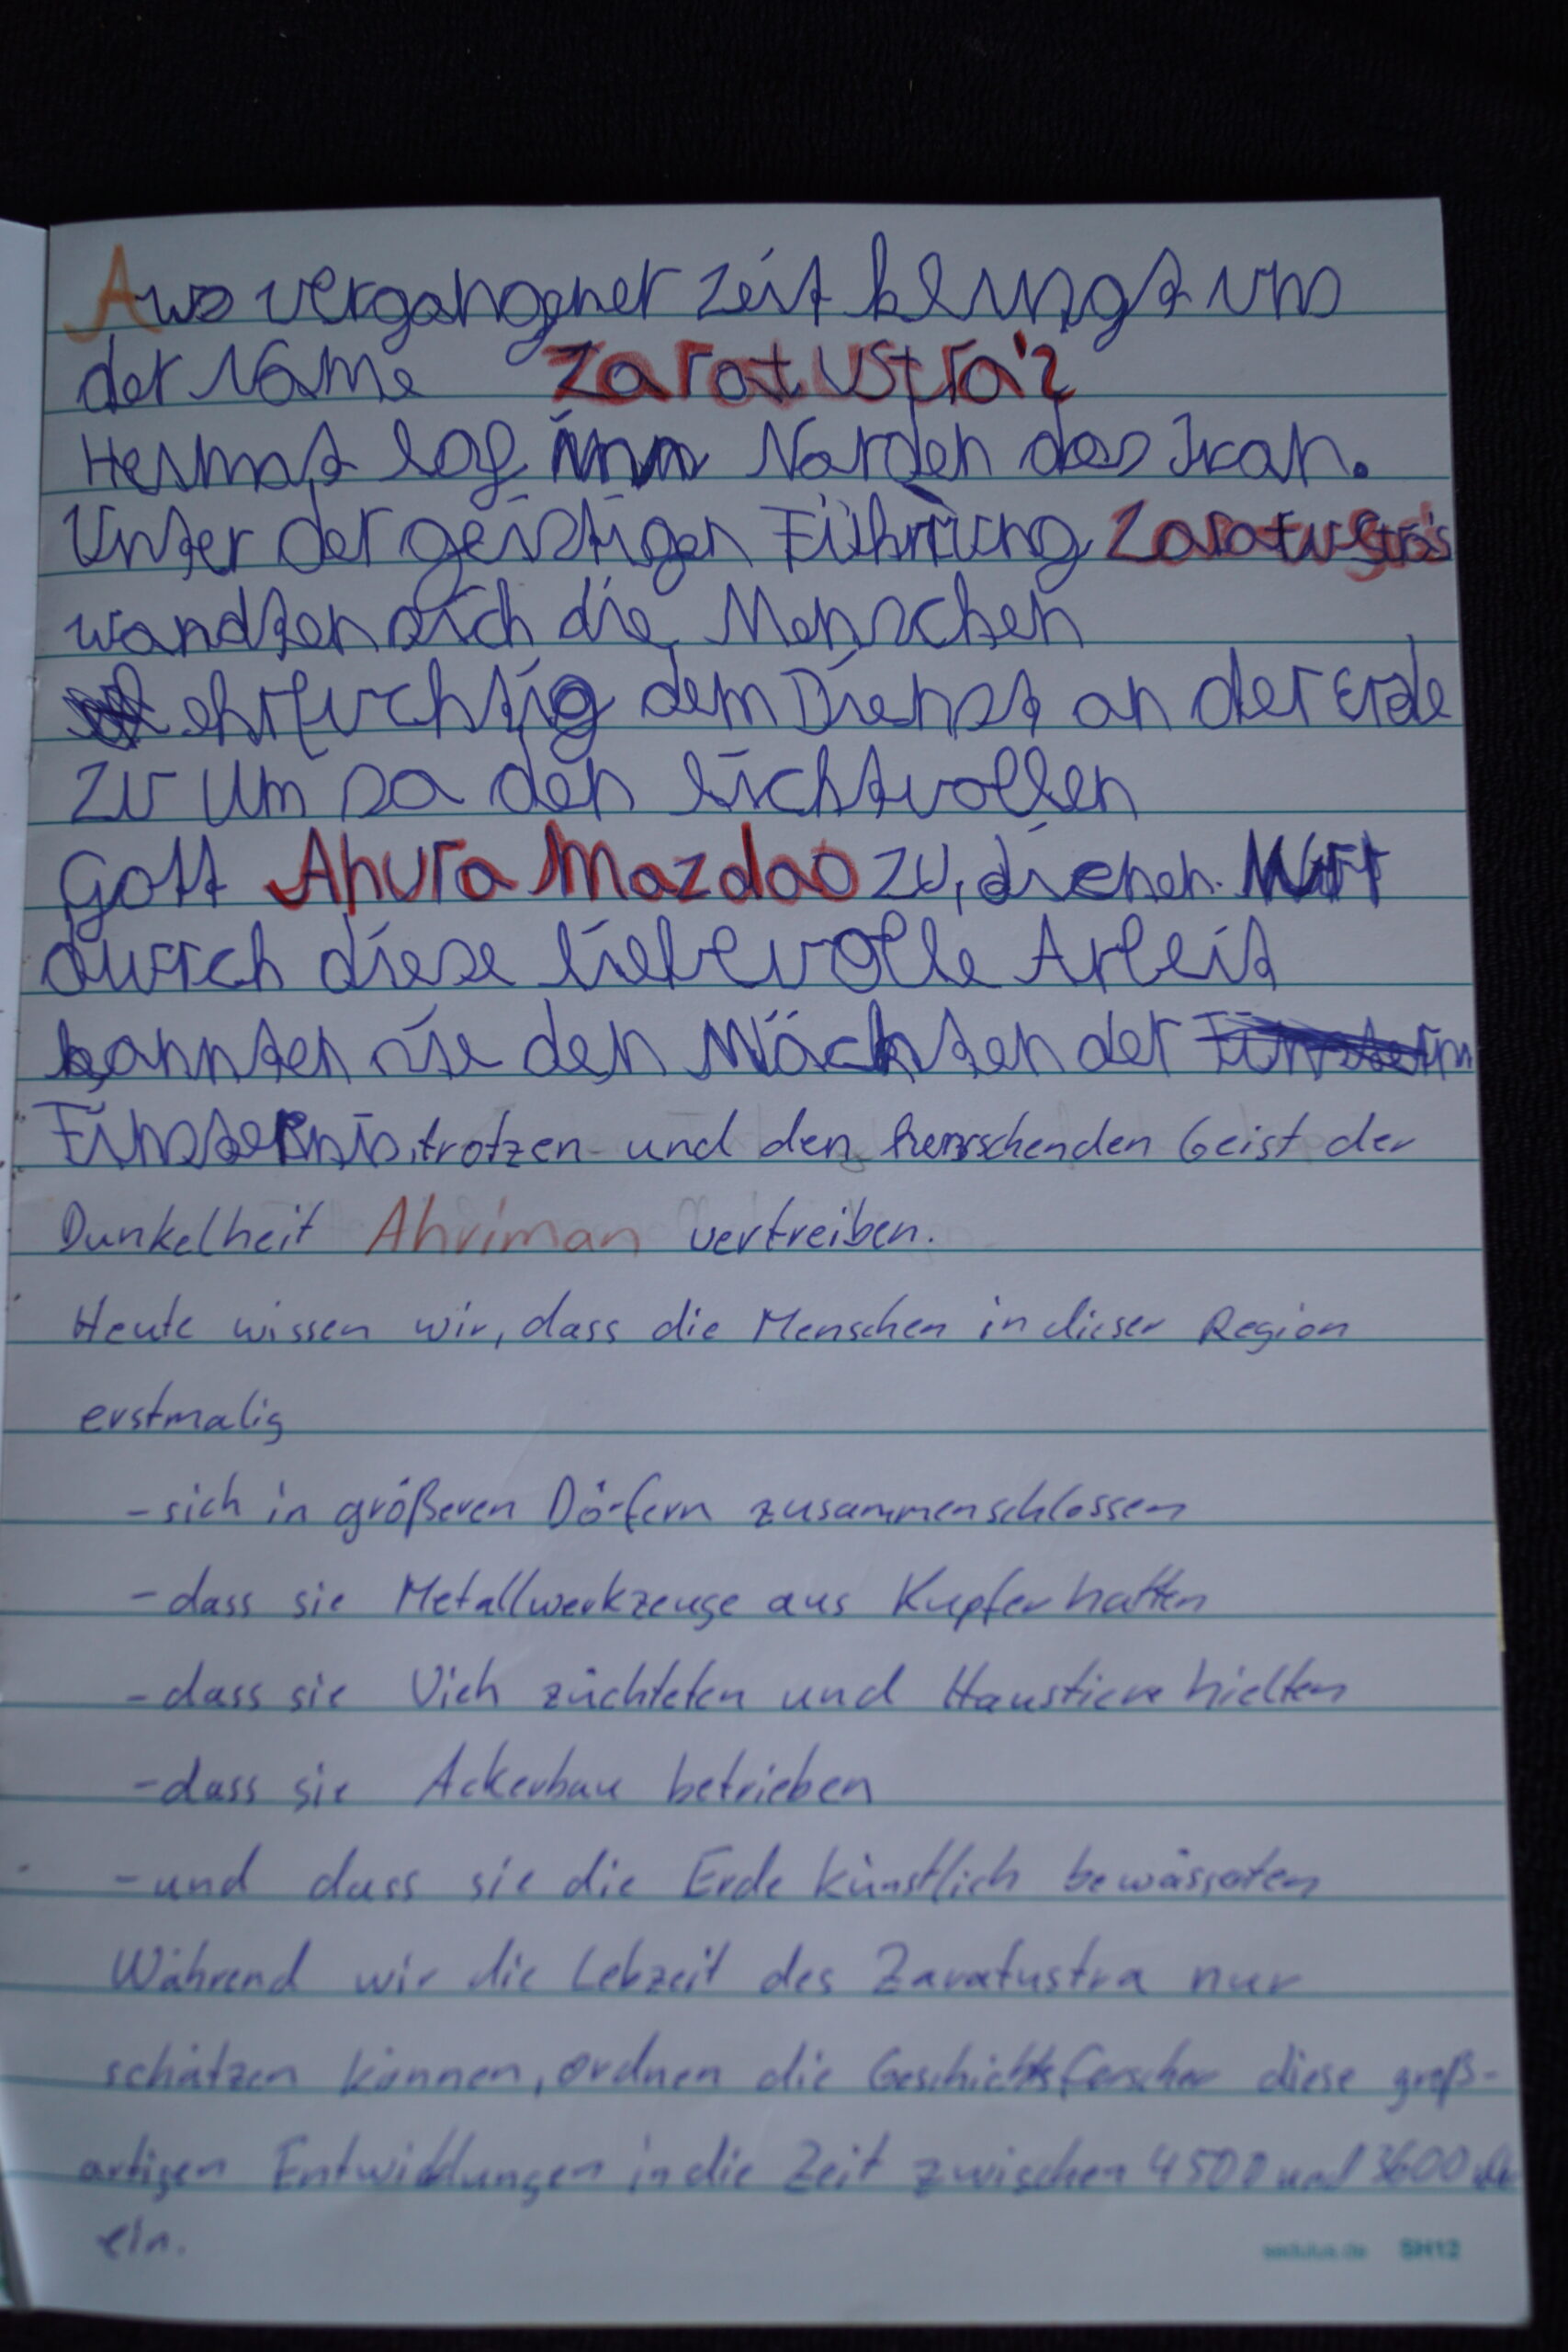 Aus vergangner Zeit klingt uns
der Name Zaratustra's
Heimat lag im Norden des Iran.
Unter der geistigen Führung Zaratustra's
wandten sich die Menschen
ehrfurchtig dem Dienst an der Erde
zu um so den lichtvollen
Gott Ahura Mazdao zu, dienen.
durch diese liebevolle Arbeit
konnten sie den Mächten der
Finsternis, trotzen und den herrschenden Geist der
Dunkelheit Ahriman vertreiben.
Heute wissen wir, dass die Menschen in dieser Region
erstmalig
- sich in größeren Dörfern zusammenschlossen
- dass sie Metallwerkzeuge aus Kupfer hatten
- dass sie Vieh züchteten und Haustiere hielten
- dass sie Ackerbau betrieben
- und dass sie die Erde künstlich bewässerten
Während wir die Lebzeit des Zaratustra nur
schätzen können, ordnen die Geschichtsforscher diese groß-
artigen Entwicklungen in die Zeit zwischen 4500 und 3600
ein.
sedulus.de SH12